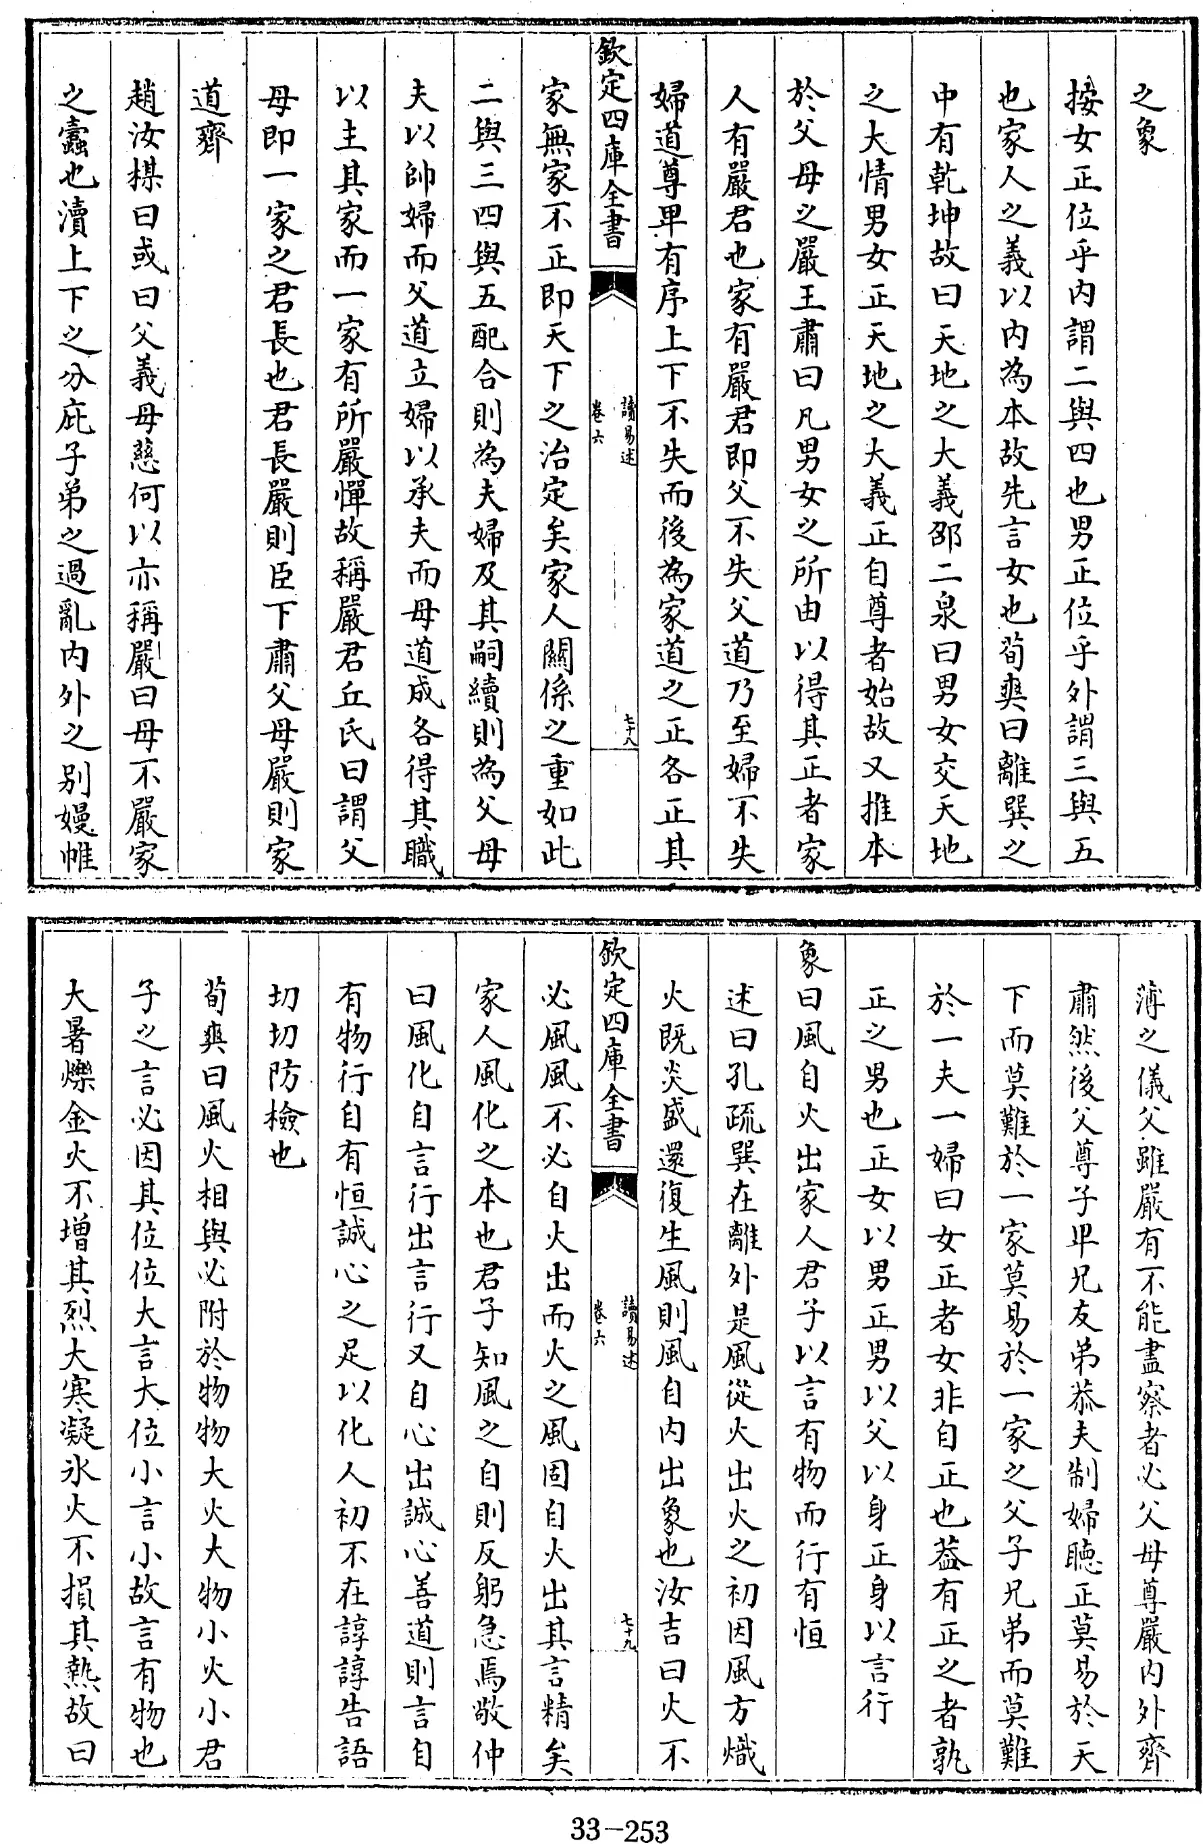 之象
按女正位乎内謂二與四也男正位乎外謂三與五
也家人之義以内為本故先言女也荀爽曰離巽之
中有乾坤故曰天地之大義邵二泉曰男女交天地
之大情男女正天地之大義正自尊者始故又推本
於父母之嚴王肅曰凡男女之所由以得其正者家
人有嚴君也家有嚴君即父不失父道乃至婦不失
婦道尊卑有序上下不失而後為家道之正各正其
欽定四庫全書
讀易述
卷六
七十八
家無家不正即天下之治定矣家人關係之重如此
二與三四與五配合則為夫婦及其嗣續則為父母
夫以帥婦而父道立婦以承夫而母道成各得其職
以主其家而一家有所嚴憚故稱嚴君丘氏曰謂父
母即一家之君長也君長嚴則臣下肅父母嚴則家
道齊
趙汝楳曰或曰父義母慈何以亦稱嚴曰母不嚴家
之蠧也瀆上下之分庇子弟之過亂内外之别嫚帷
薄之儀父雖嚴有不能盡察者必父母尊嚴内外齊
肅然後父尊子卑兄友弟恭夫制婦聴正莫易於天
下而莫難於一家莫易於一家之父子兄弟而莫難
於一夫一婦曰女正者女非自正也葢有正之者孰
正之男也正女以男正男以父以身正身以言行
象曰風自火出家人君子以言有物而行有恒
述曰孔疏巽在離外是風從火出火之初因風方熾
火既炎盛還復生風則風自内出象也汝吉曰火不
欽定四庫全書
讀易述
卷六
七十九
必風風不必自火出而火之風固自火出其言精矣
家人風化之本也君子知風之自則反躬急焉敬仲
曰風化自言行出言行又自心出誠心善道則言自
有物行自有恒誠心之足以化人初不在諄諄告語
切切防檢也
荀爽曰風火相與必附於物物大火大物小火小君
子之言必因其位位大言大位小言小故言有物也
大暑爍金火不增其烈大寒凝氷火不損其熱故曰
33-253